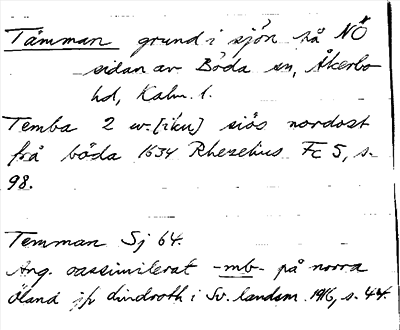 Tämman grund i sjön på NÖ
sidan av Böda sn, Åkerbo
hd, Kalm. l.
Temba 2 w. [iku] siös nordost
frå böda 1634 Rhezelius Fc 5, s.
98.
Temman Sj 64.
Ang. oassimilerat -mb- på norra
Öland jfr Lindroth i Sv. landsm. 1916, s. 44.